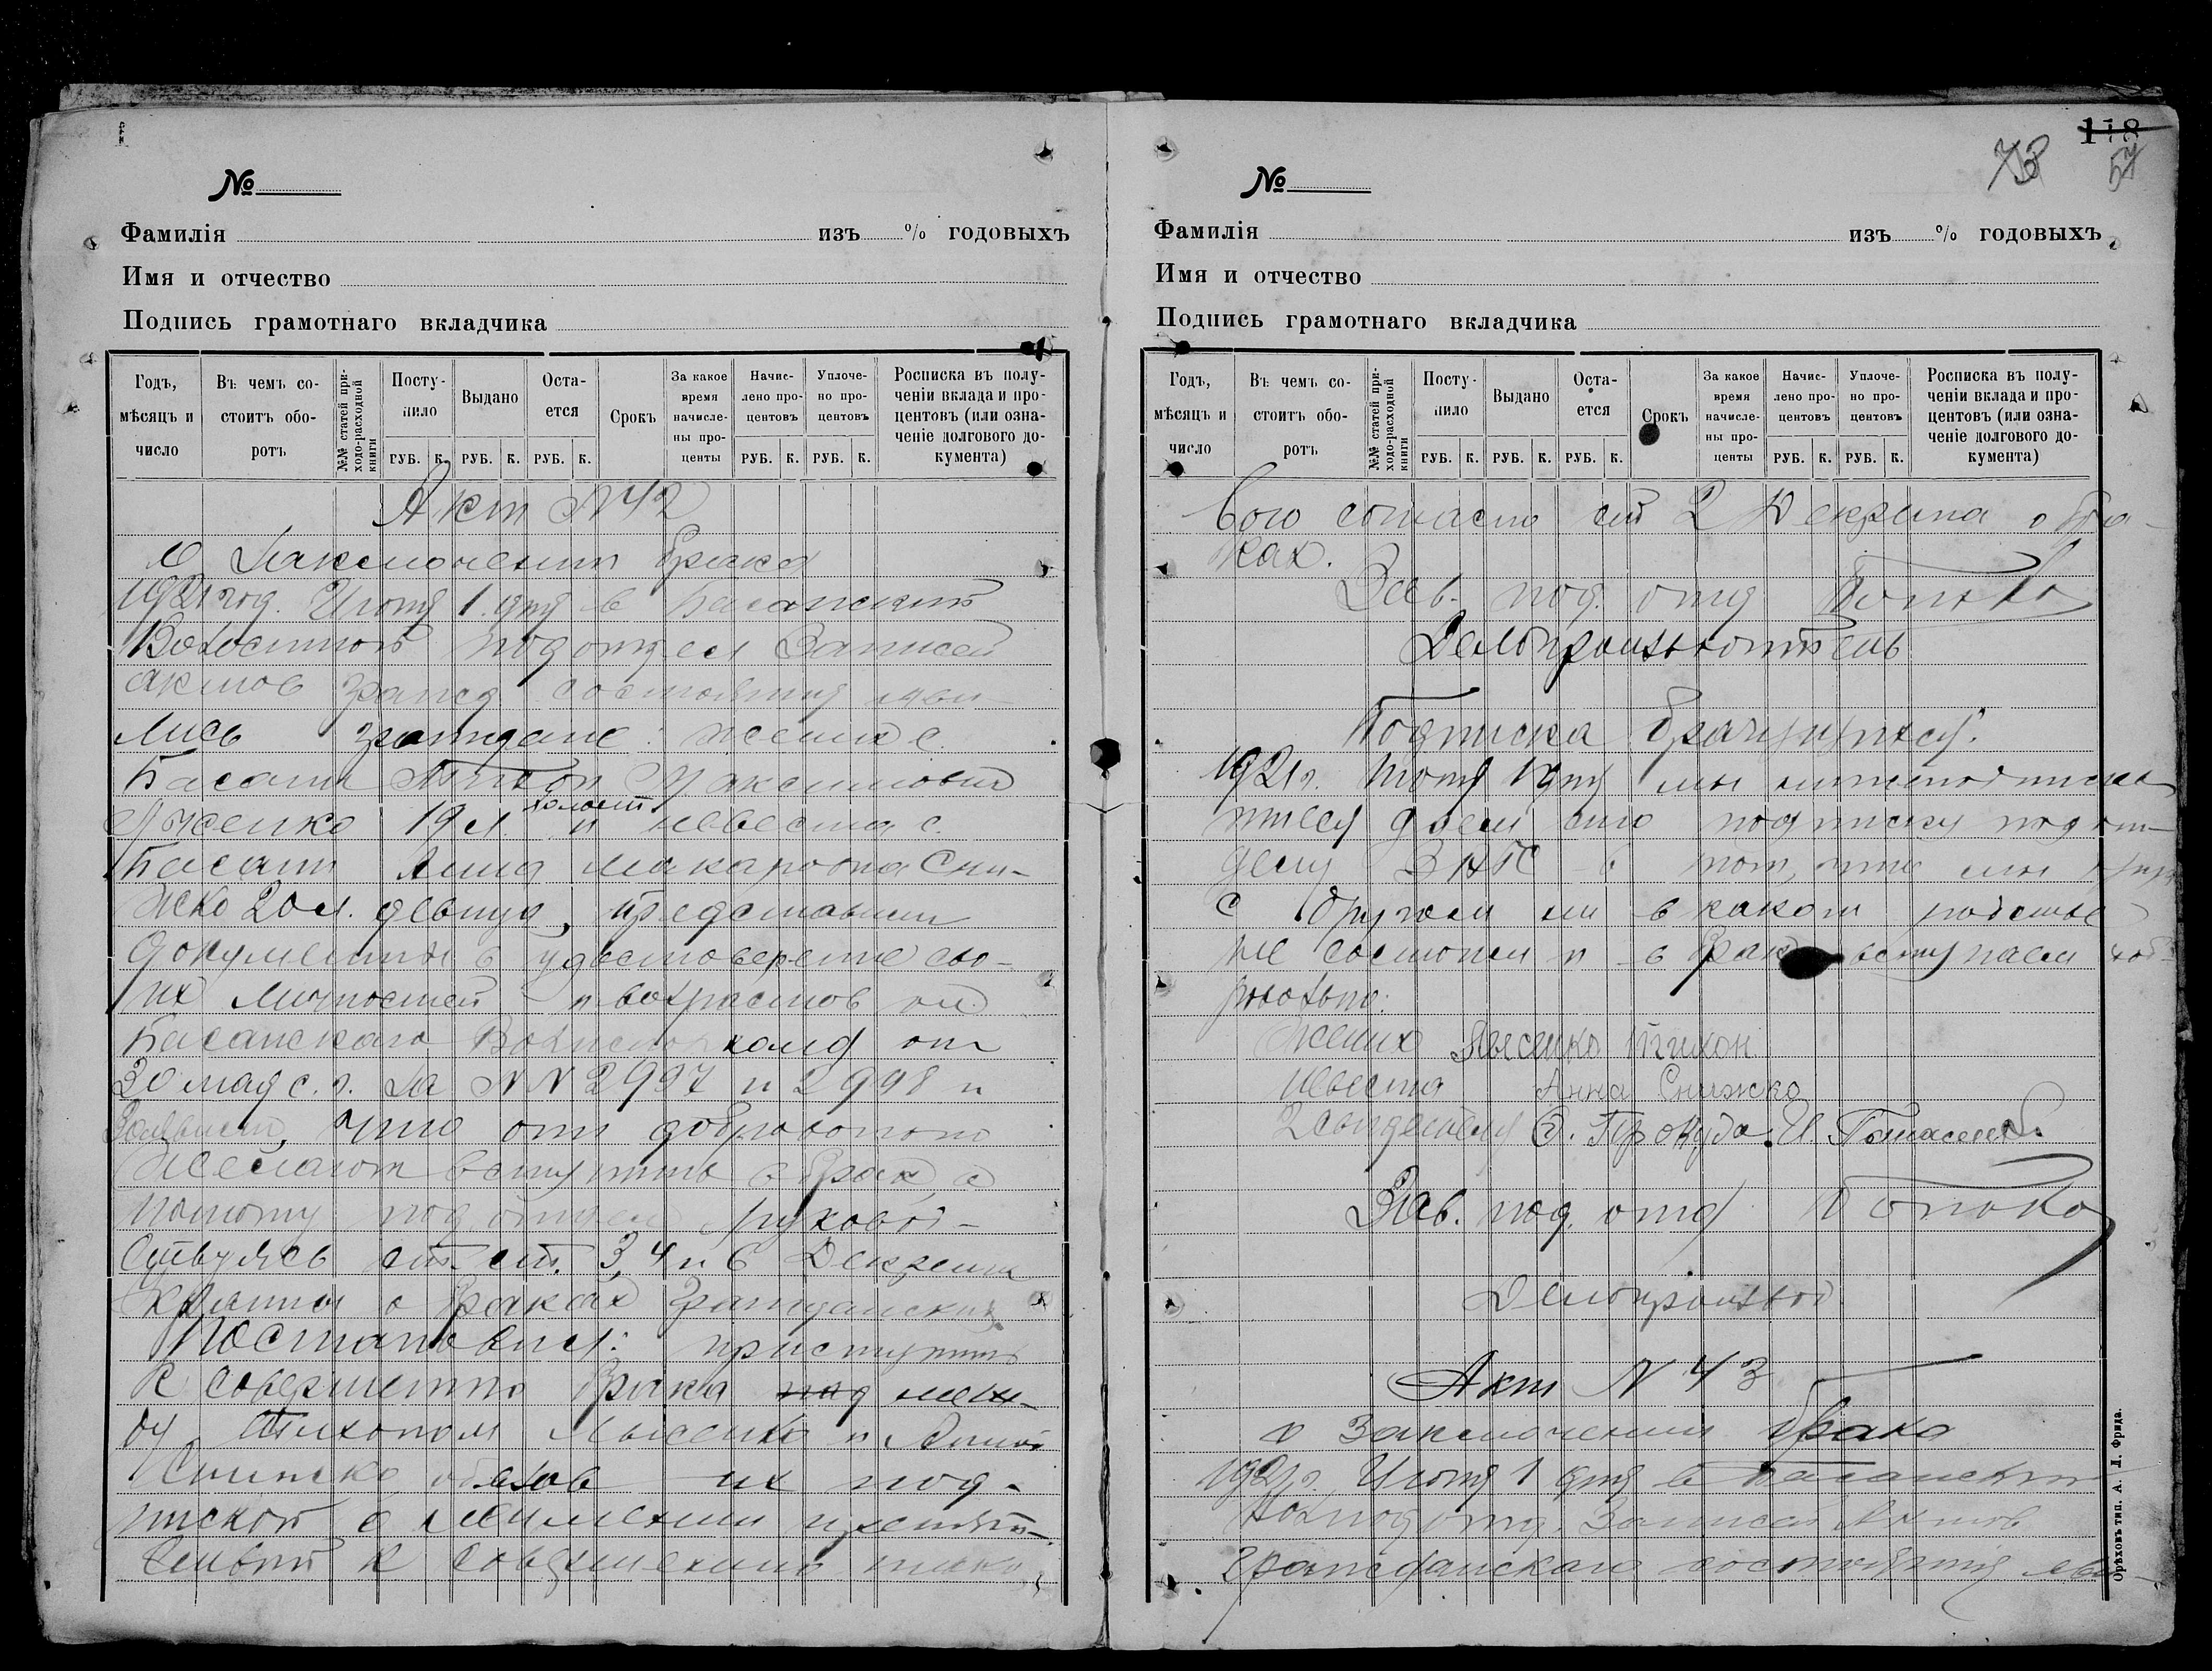 №
Фамилія изъ % годовыхъ
Имя и отчество
Подпись грамотнаго вкладчика
Годъ, мѣсяцъ и число
Въ чемъ состоитъ оборотъ
№№ статей приходо-расходной книги
Поступило
Выдано
Остается
Срокъ
За какое время начислены проценты
Начислено процентовъ
Уплочено процентовъ
Росписка въ полученіи вклада и процентовъ (или означеніе долгового документа)
РУБ. К. РУБ. К. РУБ. К. РУБ. К. РУБ. К.
Акт N 42
о Заключении брака
1921 год. Июня 1 дня в Басанский
Волостной подотдел Записей
актов гражд состояния яви-
лись граждане: жених с.
Басани Тихон Максимович
холост
Лысенко 19 л. и невеста с.
Басани Анна Макаровна Сни-
жко 20 л. девица, представили
документы в удостоверение сво-
их личностей и возрастов
Басанского от
30 мая с. г. за NN 2997 и 2998 и
что они добровольно
желают вступить в брак, а
потому подотдел руковод-
ствуясь ст. ст. 3, 4 и 6 Декрета
о браках гражданских
Постановил: приступить
к совершению брака над меж-
ду Тихоном Лысенко и Анной
Снижко, обязав их под-
пиской о неимении препят-
ствий к совершению тако-
118
57
№
Фамилія изъ % годовыхъ
Имя и отчество
Подпись грамотнаго вкладчика
Годъ, мѣсяцъ и число
Въ чемъ состоитъ оборотъ
№№ статей приходо-расходной книги
Поступило
Выдано
Остается
Срокъ
За какое время начислены проценты
Начислено процентовъ
Уплочено процентовъ
Росписка въ полученіи вклада и процентовъ (или означеніе долгового документа)
РУБ. К. РУБ. К. РУБ. К. РУБ. К. РУБ. К.
вого согласно ст 2 Декрета о бра-
ках.
Зав. под. отд
Делопроизводитель
Подписка брачущихся.
1921 г. Июня 1 дня мы нижеподписав
шиеся даем сию подписку подот-
делу ЗАГС в том, что мы друг
с другом ни в каком родстве
не состоим и в брак вступаем доб-
ровольно.
Жених Лысенко Тихон
Невеста Анна Снижко
2 свидетеля
Зав. под. отд
Делопроизвод
Акт N 43
о Заключении брака
1921 г. Июня 1 дня в Басанский
Волподотд. Записей Актов
гражданского состояния яви-
Орѣховъ тип. А. Д. Фрида.